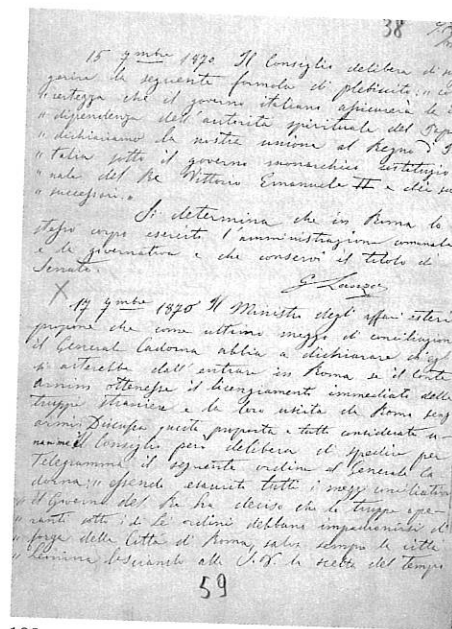 38
15 7mbre 1870 Il Consiglio delibera di
gerire la seguente formola di plebiscito: "
"certezza che il governo italiano assicurerà
"dipendenza dell'autorità spirituale del Papa
"dichiariamo la nostra unione al Regno d'
"talia sotto il governo monarchico costituzio
"nale del Re Vittorio Emanuele II e dei suoi
"successori."
Si determina che in Roma lo
stesso corpo eserciti l'amministrazione comunale
e la governativa e che conservi il titolo di
Senato.
G Lanza
X 17 7mbre 1870 Il Ministro degli affari esteri
propone che come ultimo mezzo di conciliazione
il General Cadorna abbia a dichiarare ch'egli
si asterebbe dall'entrare in Roma se il Conte
Arnim ottenesse il licenziamento immediato delle
truppe straniere e la loro uscita da Roma senz'
armi. Discussa questa proposta e tutto considerato u-
nanime il Consiglio però delibera di spedire per
Telegramma il seguente ordine al Generale Ca
dorna: "essendo esauriti tutti i mezzi conciliativi
"il Governo del Re ha deciso che le truppe ope-
"ranti sotti i di Lei ordini debbano impadronirsi di
"forza della Città di Roma, salva sempre la città
"Leonina lasciando alla S.V. la scelta del tempo
59